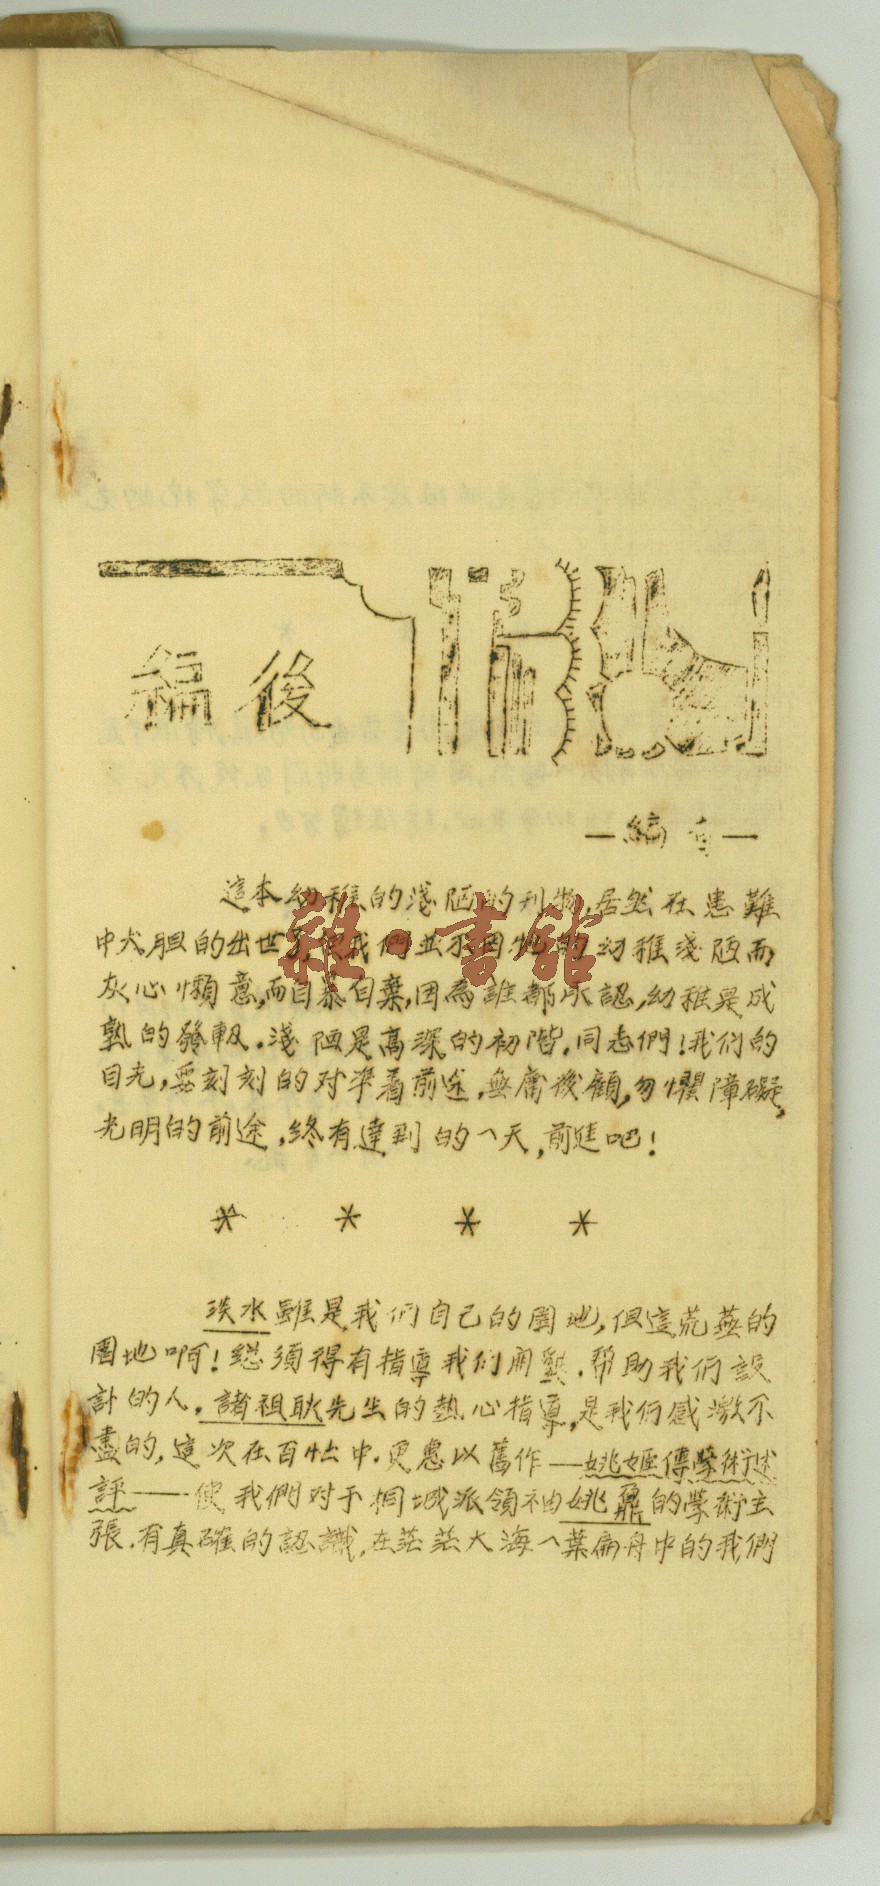 編後
—編者—
這本幼稚的淺陋的刊物,居然在患難
中大胆的出世了,但我們並不因牠的幼稚淺陋而
灰心懶意,而自暴自棄,因為誰都承認,幼稚是成
熟的發軔.淺陋是高深的初階.同志們!我们的
目光,要刻刻的对準着前途,無庸後顧,勿懼障礙,
光明的前途,終有達到的一天,前進吧!
* * * *
淡水雖是我们自己的園地,但這荒蕪的
園地啊!總須得有指導我们開墾.帮助我们設
計的人.諸祖耿先生的熱心指導,是我们感激不
盡的,這次在百忙中.更惠以舊作——姚姬傳學術述
評——使我們对于桐城派領袖姚鼐的學術主
張.有真確的認識,在茫茫大海一葉扁舟中的我們
雜·書館